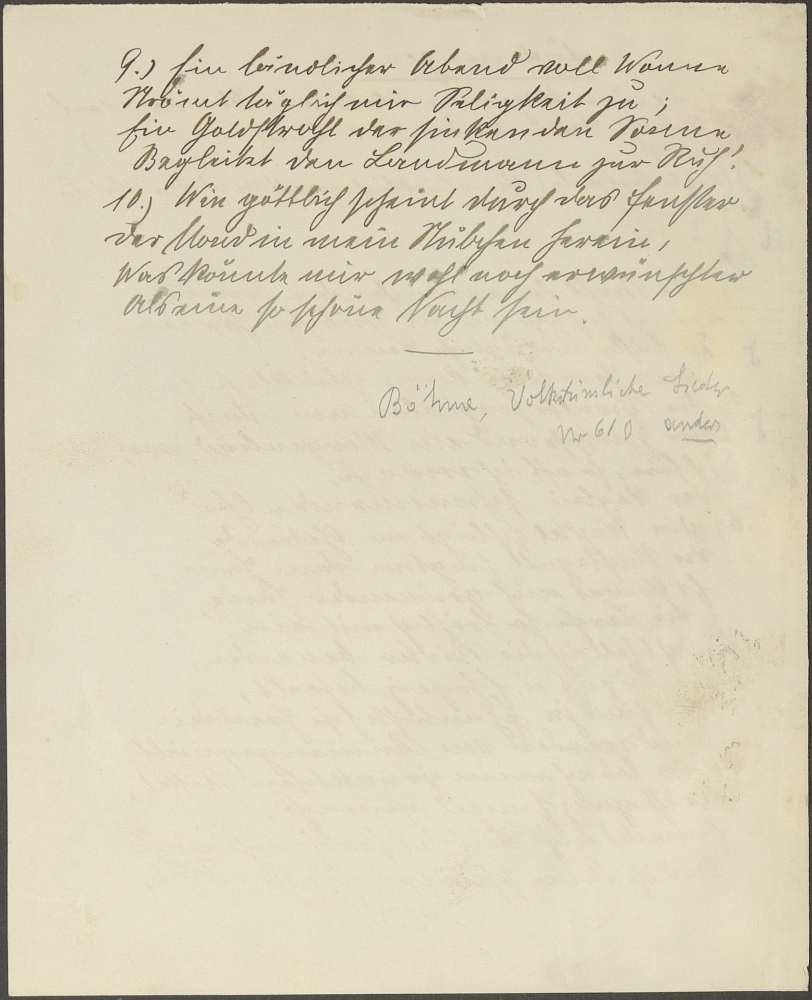 9.) Ein ländlicher Abend voll Wonne
Strömt täglich mir Seligkeit zu;
Ein Goldstrahl der sinkenden Sonne
Begleitet den Landmann zur Ruh'.
10.) Wie göttlich scheint durch das Fenster
Der Mond in mein Stübchen herein,
Was könnte mir wohl noch erwünschter
Als eine so schöne Nacht sein.
Böhme, Volkstümliche Lieder
Nr 610 anders